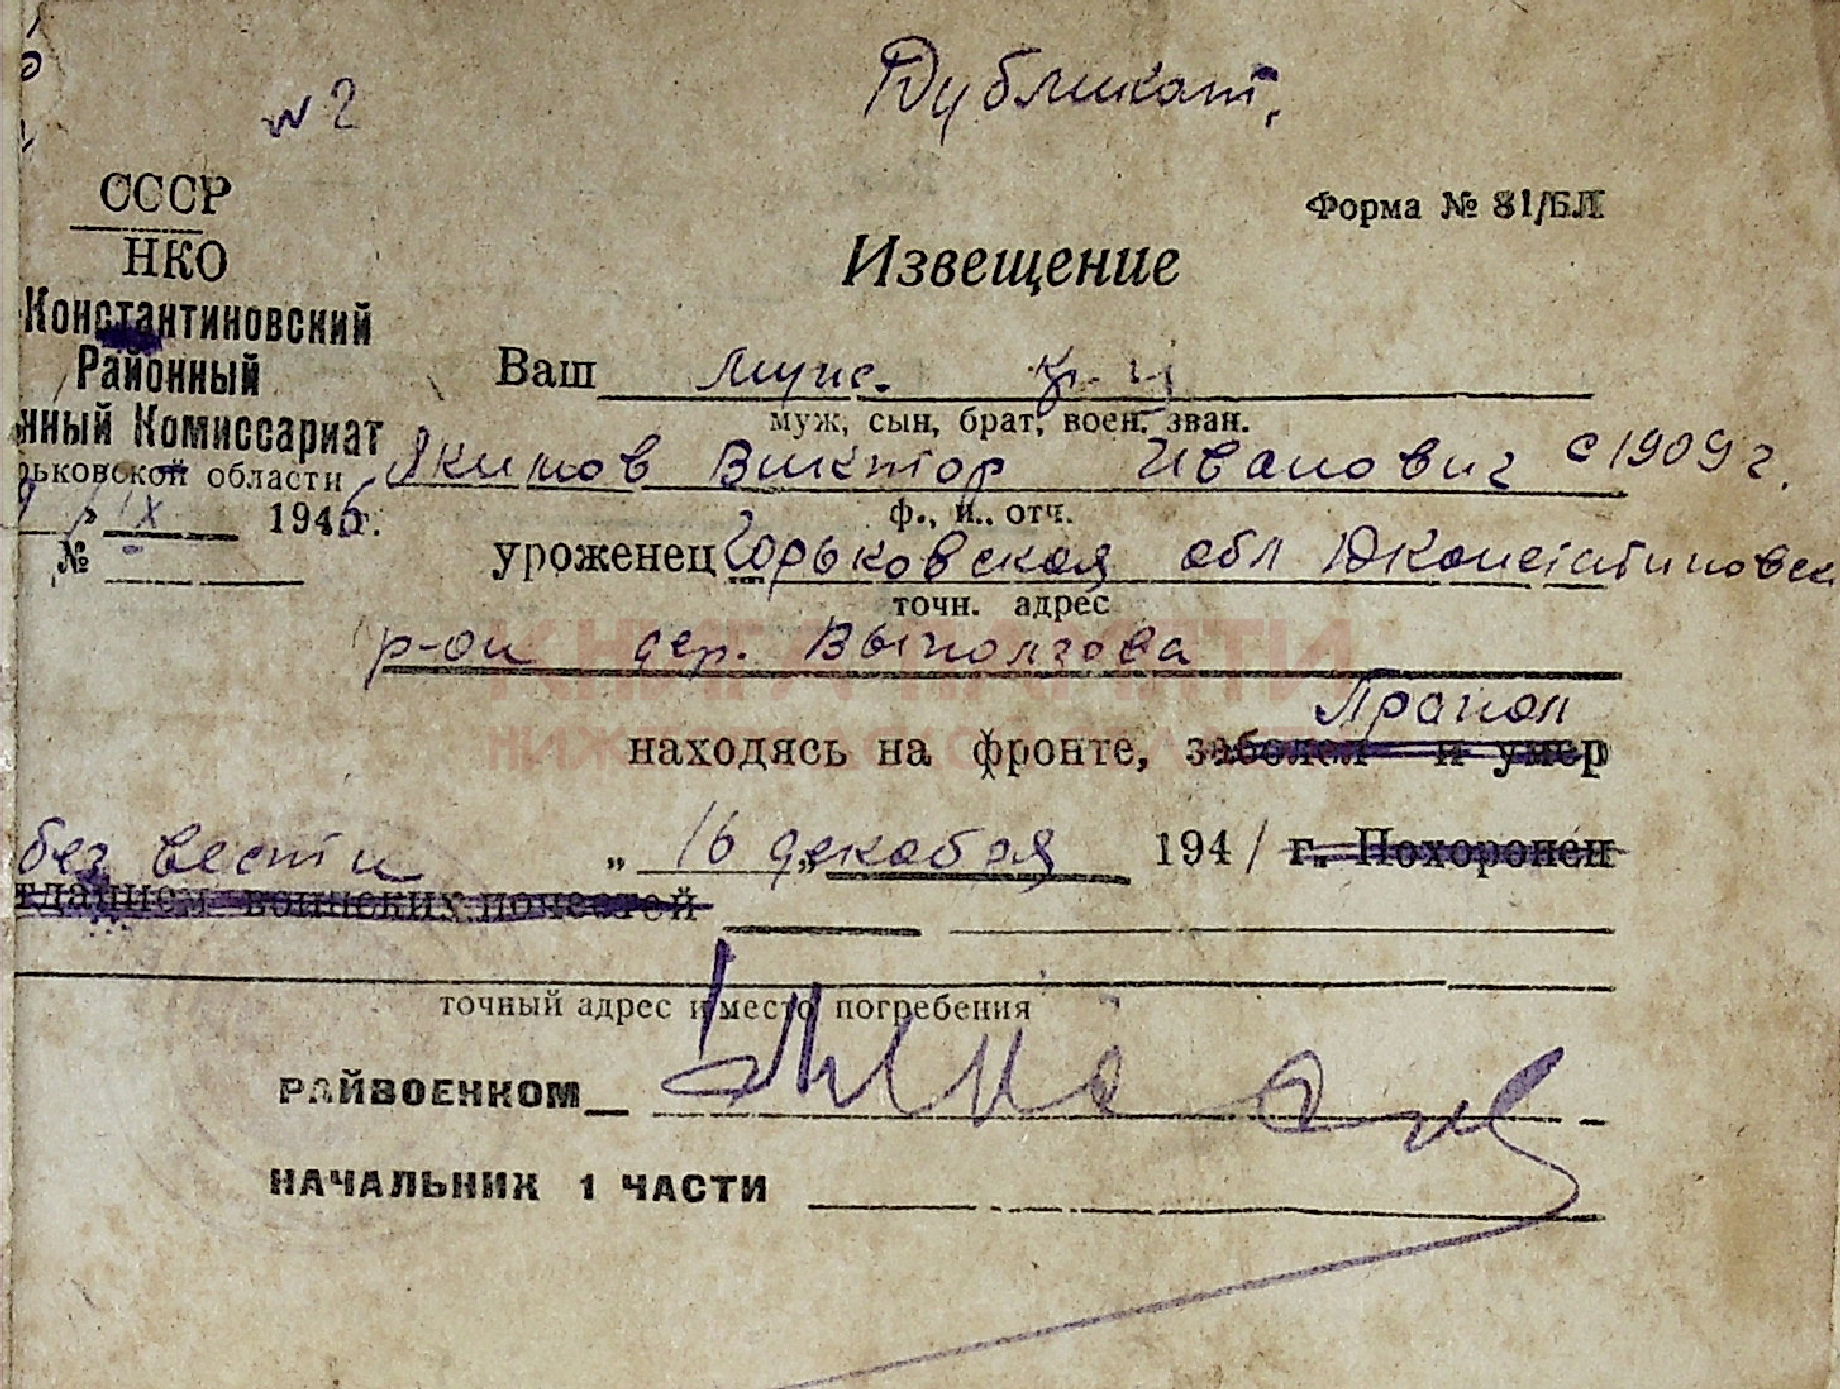 Дубликат.
№ 2
СССР
НКО
Константиновский
Районный
нный Комиссариат
рьковской области
9 " IX 1946 г.
№
Форма № 81/БЛ
Извещение
Ваш муж. кр-ц
муж, сын, брат, воен. зван.
Якимов Виктор Иванович с 1909 г.
ф., и., отч.
уроженец Горьковская обл Д Константиновск
точн. адрес
р-он дер. Выполгова
КНИГА ПАМЯТИ
Пропал
находясь на фронте, заболел и умер
без вести „ 16 „ декабря 1941 г. Похоронен
тданием воинских почестей
точный адрес и место погребения
РАЙВОЕНКОМ
НАЧАЛЬНИК 1 ЧАСТИ